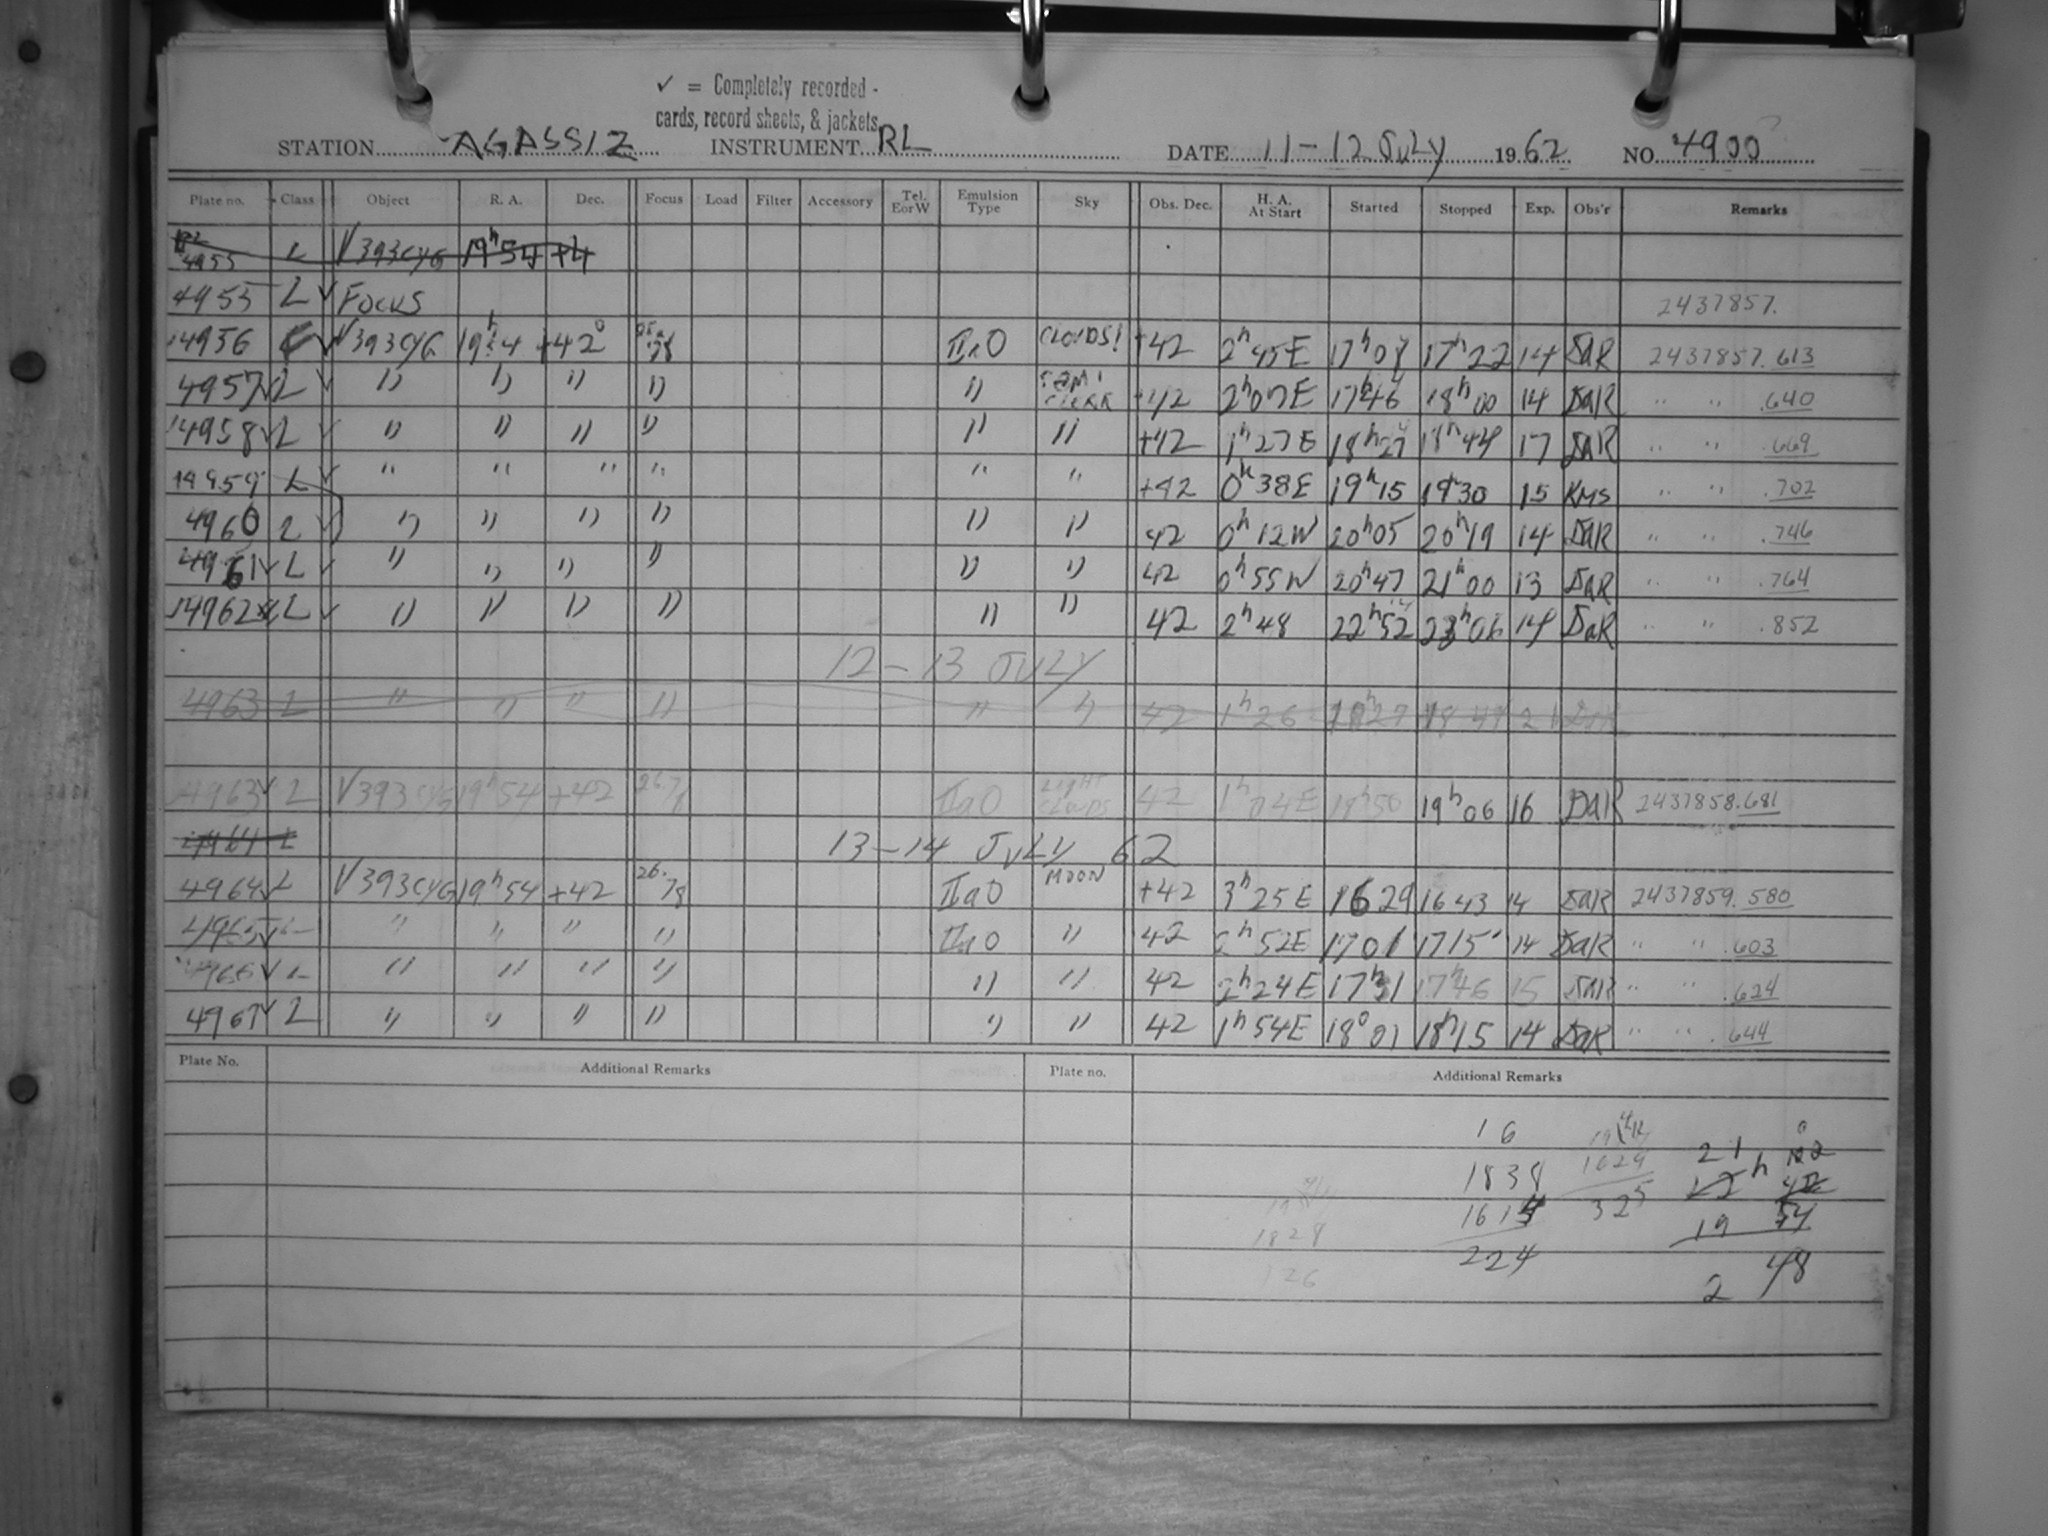 ✓ = Completely recorded -
cards, record sheets, & jackets
STATION AGASSIZ INSTRUMENT RL DATE 11-12 JULY 1962 NO 4900
Plate no. Class Object R. A. Dec. Focus Load Filter Accessory Tel. EorW Emulsion Type Sky Obs. Dec. H. A. At Start Started Stopped Exp. Obs'r Remarks
4955 L V393CYG 19h54 +4
4955 L ✓ FOCUS 2437857.
14956 ✓ V393CYG 19h54 +42° IIaO CLOUDS! +42 2h45E 17h08 17h22 14 DaR 2437857.613
4957 ✓ L ✓ " " " " " SEMI CLEAR +42 2h07E 17h46 18h00 14 DaR " " .640
14958 ✓ L ✓ " " " " " " +42 1h27E 18h27 18h44 17 DaR " " .669
14959 L ✓ " " " " " " +42 0h38E 19h15 19h30 15 KMS " " .702
4960 L ✓ " " " " " " 42 0h12W 20h05 20h19 14 DaR " " .746
4961 ✓ L ✓ " " " " " " 42 0h55W 20h47 21h00 13 DaR " " .764
14962 L ✓ " " " " " " 42 2h48 22h52 23h06 14 DaR " " .852
12-13 JULY
4963 L " " " " " " 42 1h26 18h27 18 49 21
4963 ✓ L V393CYG 19h54 +42 26.78 IIaO LIGHT CLOUDS 42 1h04E 18h50 19h06 16 DaR 2437858.681
13-14 JULY 62
4964 L V393CYG 19h54 +42 26.78 IIaO MOON +42 3h25E 1629 1643 14 DaR 2437859.580
4965 ✓ L " " " " IIaO " 42 2h52E 1701 1715 14 DaR " " .603
4966 ✓ L " " " " " " 42 2h24E 17h31 17h46 15 DaR " " .624
4967 ✓ L " " " " " " 42 1h54E 18h01 18h15 14 DaR " " .644
Plate No. Additional Remarks Plate no. Additional Remarks
16
1838 1629 21h
1614 325 19 54
1828 224
126 2 48